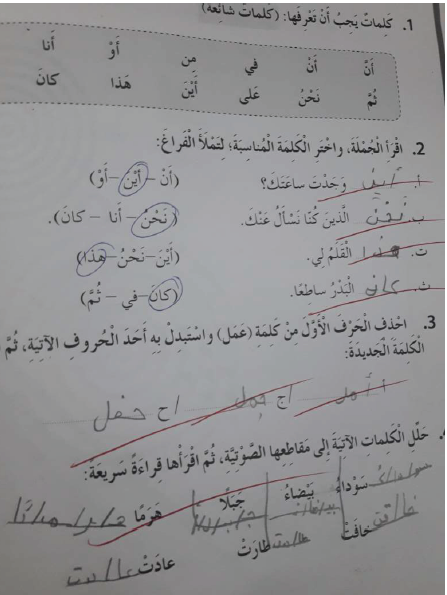 1. كَلِماتٌ يَجِبُ أَنْ تَعْرِفَها: (كَلِماتٌ شائِعَة)
أَنَّ أَنْ في من أَوْ أَنا
ثُمَّ نَحْنُ عَلى أَيْنَ هَذا كانَ
2. اقْرَأِ الْجُمْلَةَ، واخْتَرِ الْكَلِمَةَ الْمُناسِبَةَ؛ لِتَمْلَأَ الْفَراغَ:
أ. أين وَجَدْتَ ساعَتَكَ؟ (أَنْ – أَيْنَ – أَوْ)
ب. نَحْنُ الَّذينَ كُنّا نَسْأَلُ عَنْكَ. (نَحْنُ – أَنا – كانَ).
ت. هذا الْقَلَمُ لي. (أَيْنَ – نَحْنُ – هَذا)
ث. كان الْبَدْرُ ساطِعًا. (كانَ – في – ثُمَّ)
3. احْذِفِ الْحَرْفَ الْأَوَّلَ مِنْ كَلِمَةِ (عَمَل) واسْتَبْدِلْ بِهِ أَحَدَ الْحُروفِ الْآتِيَةِ، ثُمَّ
الْكَلِمَةَ الْجَديدَةَ:
أ أمل اج جمل اح حمل
4. حَلِّلِ الْكَلِماتِ الْآتِيَةَ إِلى مَقاطِعِها الصَّوْتِيَّةِ، ثُمَّ اقْرَأْها قِراءَةً سَريعَةً:
سَوْداءُ بَيْضاءُ جَبَلًا هَرَمًا
خافَتْ طارَتْ عادَتْ